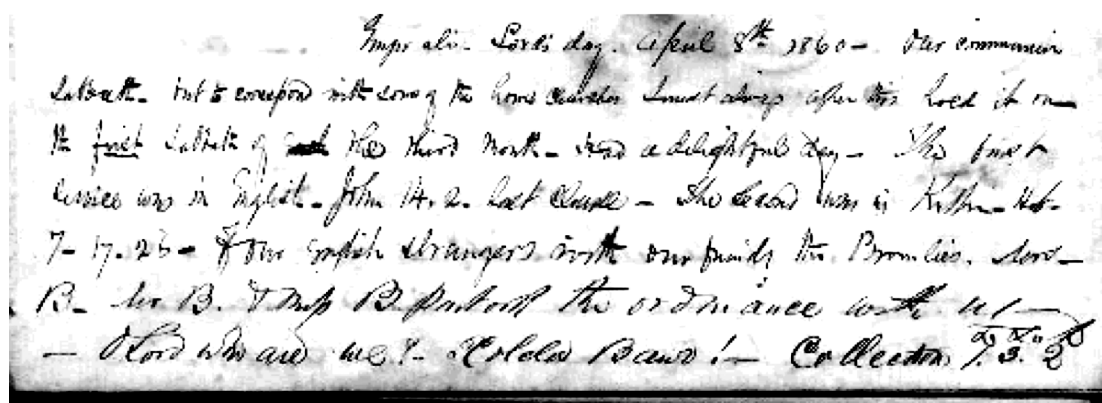 Lord's day. April 8th 1860 - Our communion
Sabbath - but to correspond with some of the home churches I must always after this hold it on
the first Sabbath of the third month - Had a delightful day - The first
service was in English - John 14. 2. last clause - The second was in Heb.
7 - 17. 25 - our English strangers with our friends the Bromlies.
B - Mr B. & Miss B. partook the ordinance with us -
- O Lord who are we? - Collection £1. 3. 2